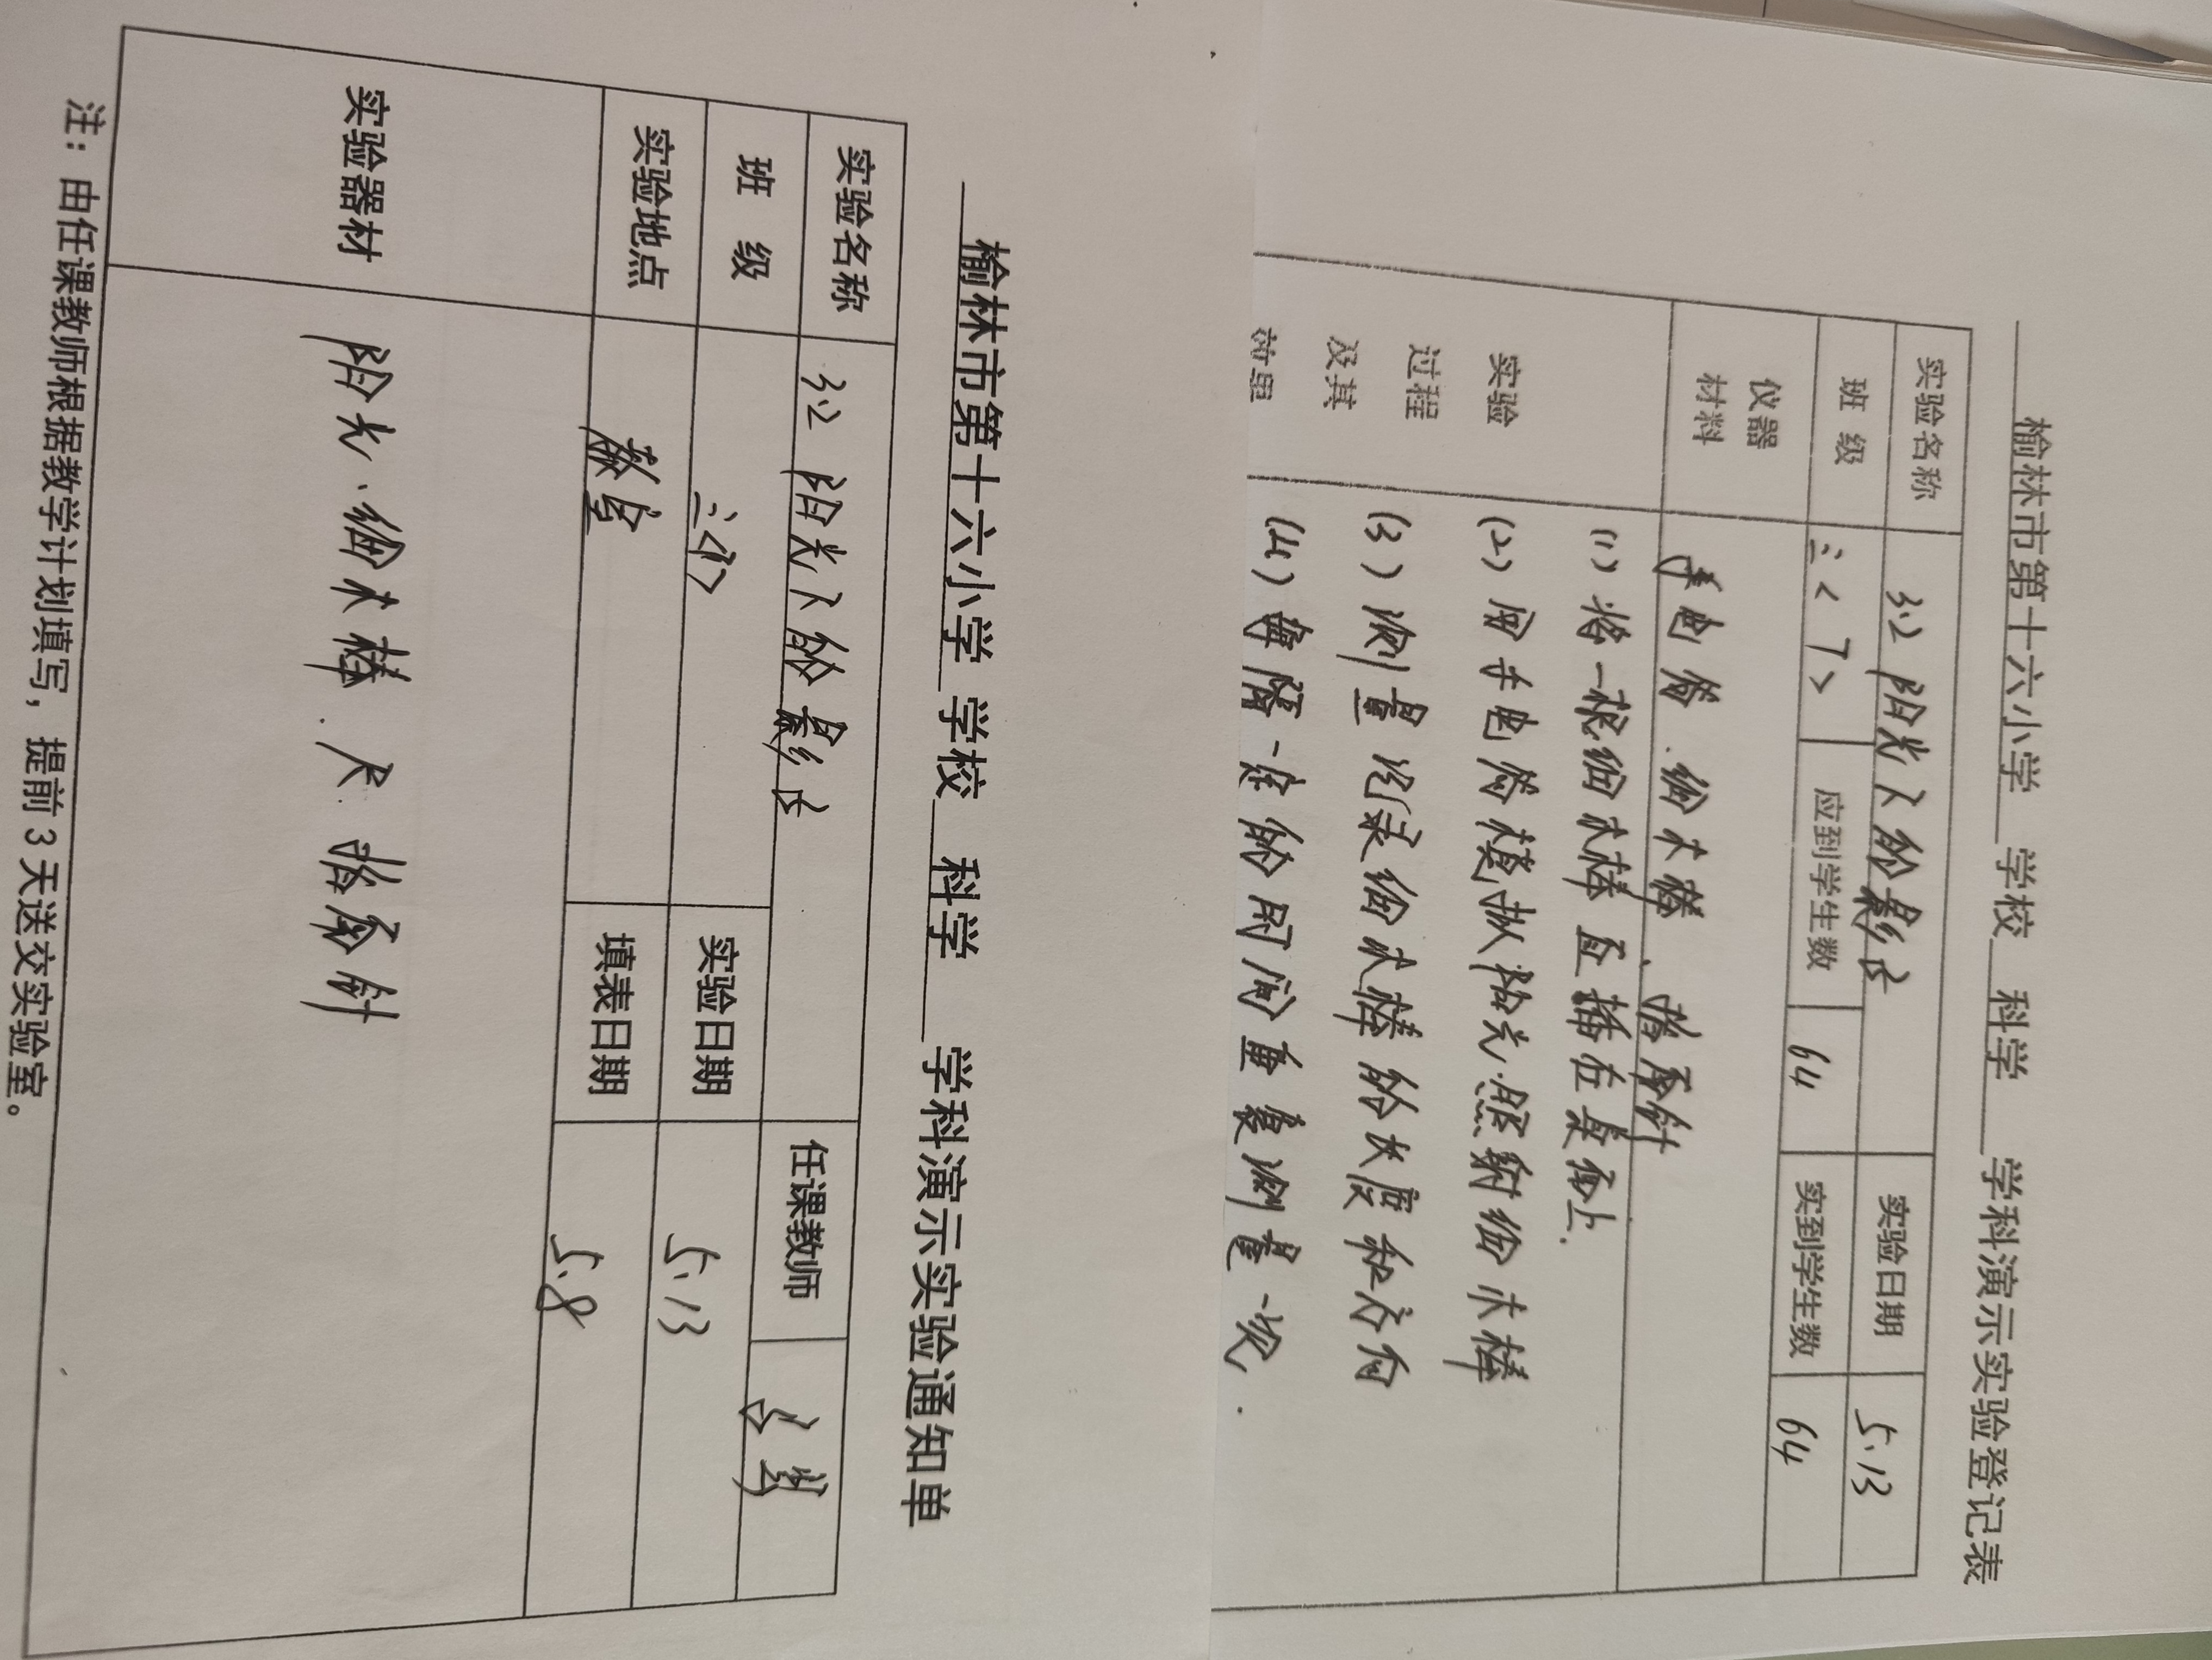 榆林市第十六小学 学校 科学 学科演示实验登记表
实验名称 3.2 阳光下的影子 实验日期 5.13
班 级 三<7> 应到学生数 64 实到学生数 64
仪器材料 手电筒.细木棒、指南针
实验过程及其
(1) 将一根细木棒直插在桌面上.
(2) 用手电筒模拟阳光.照射细木棒
(3) 测量记录细木棒的长度和方向
(4) 每隔一定的时间重复测量一次.
榆林市第十六小学 学校 科学 学科演示实验通知单
实验名称 3.2 阳光下的影子 任课教师
班 级 实验日期 5.13
实验地点 教室 填表日期 5.8
实验器材 阳光.细木棒.尺.指南针
注：由任课教师根据教学计划填写，提前3天送交实验室。